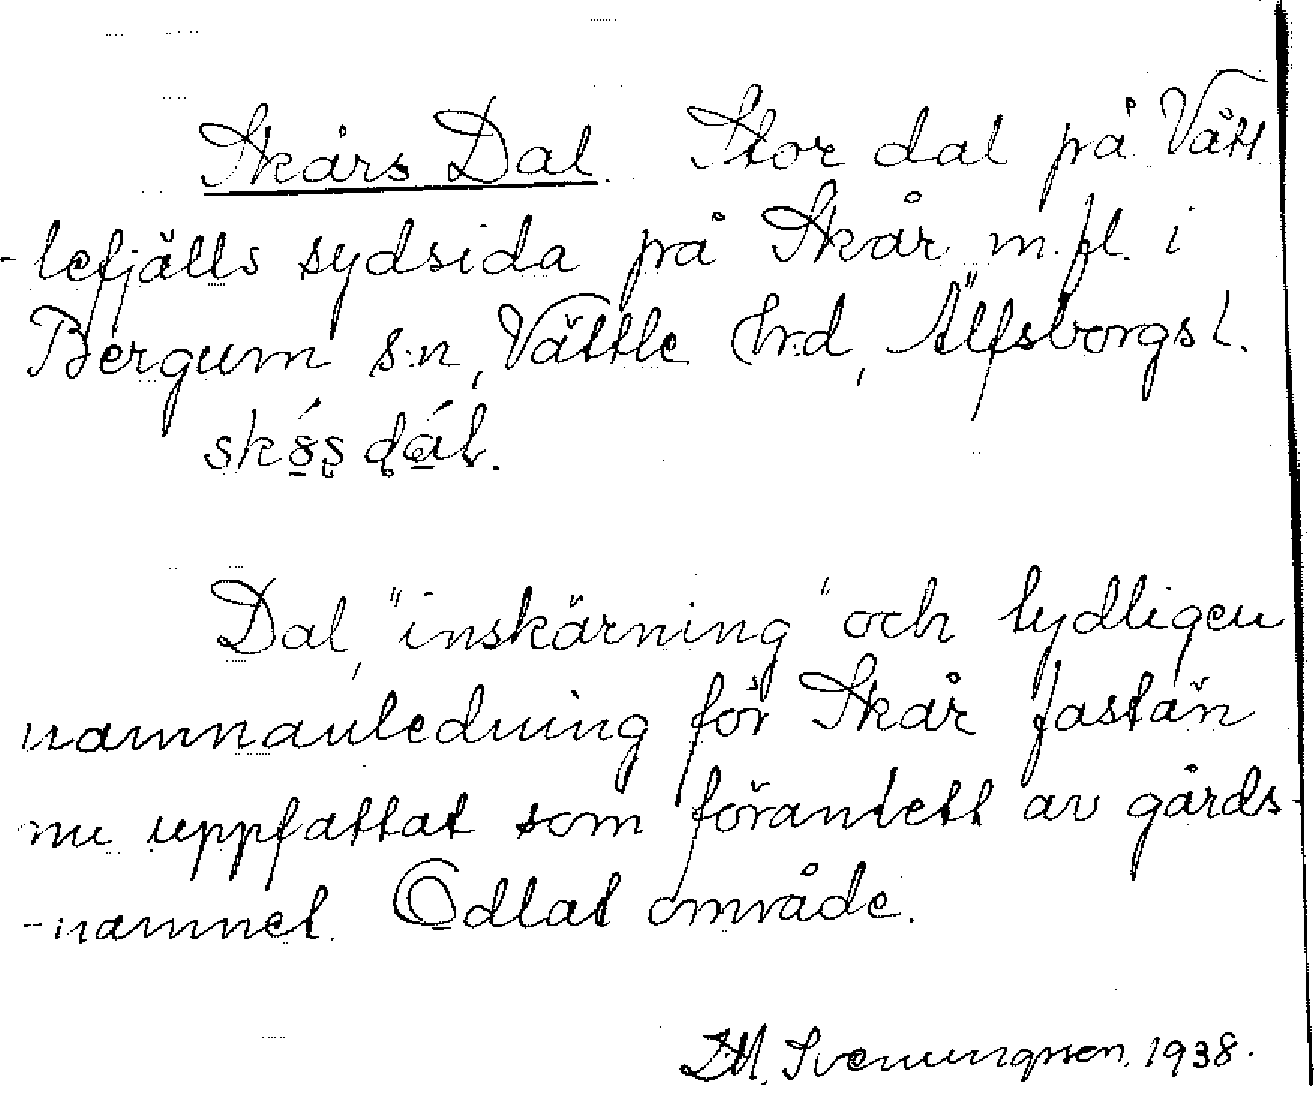 Skårs Dal. Stor dal på Vätt
-lefjälls sydsida på Skår m.fl. i
Bergum s:n, Vättle Hrd, Älfsborgs l.
Dal, "inskärning" och tydligen
namnanledning för Skår fastän
nu uppfattat som förantett av gårds-
-namnet. Odlat område.
Svenungsson. 1938.